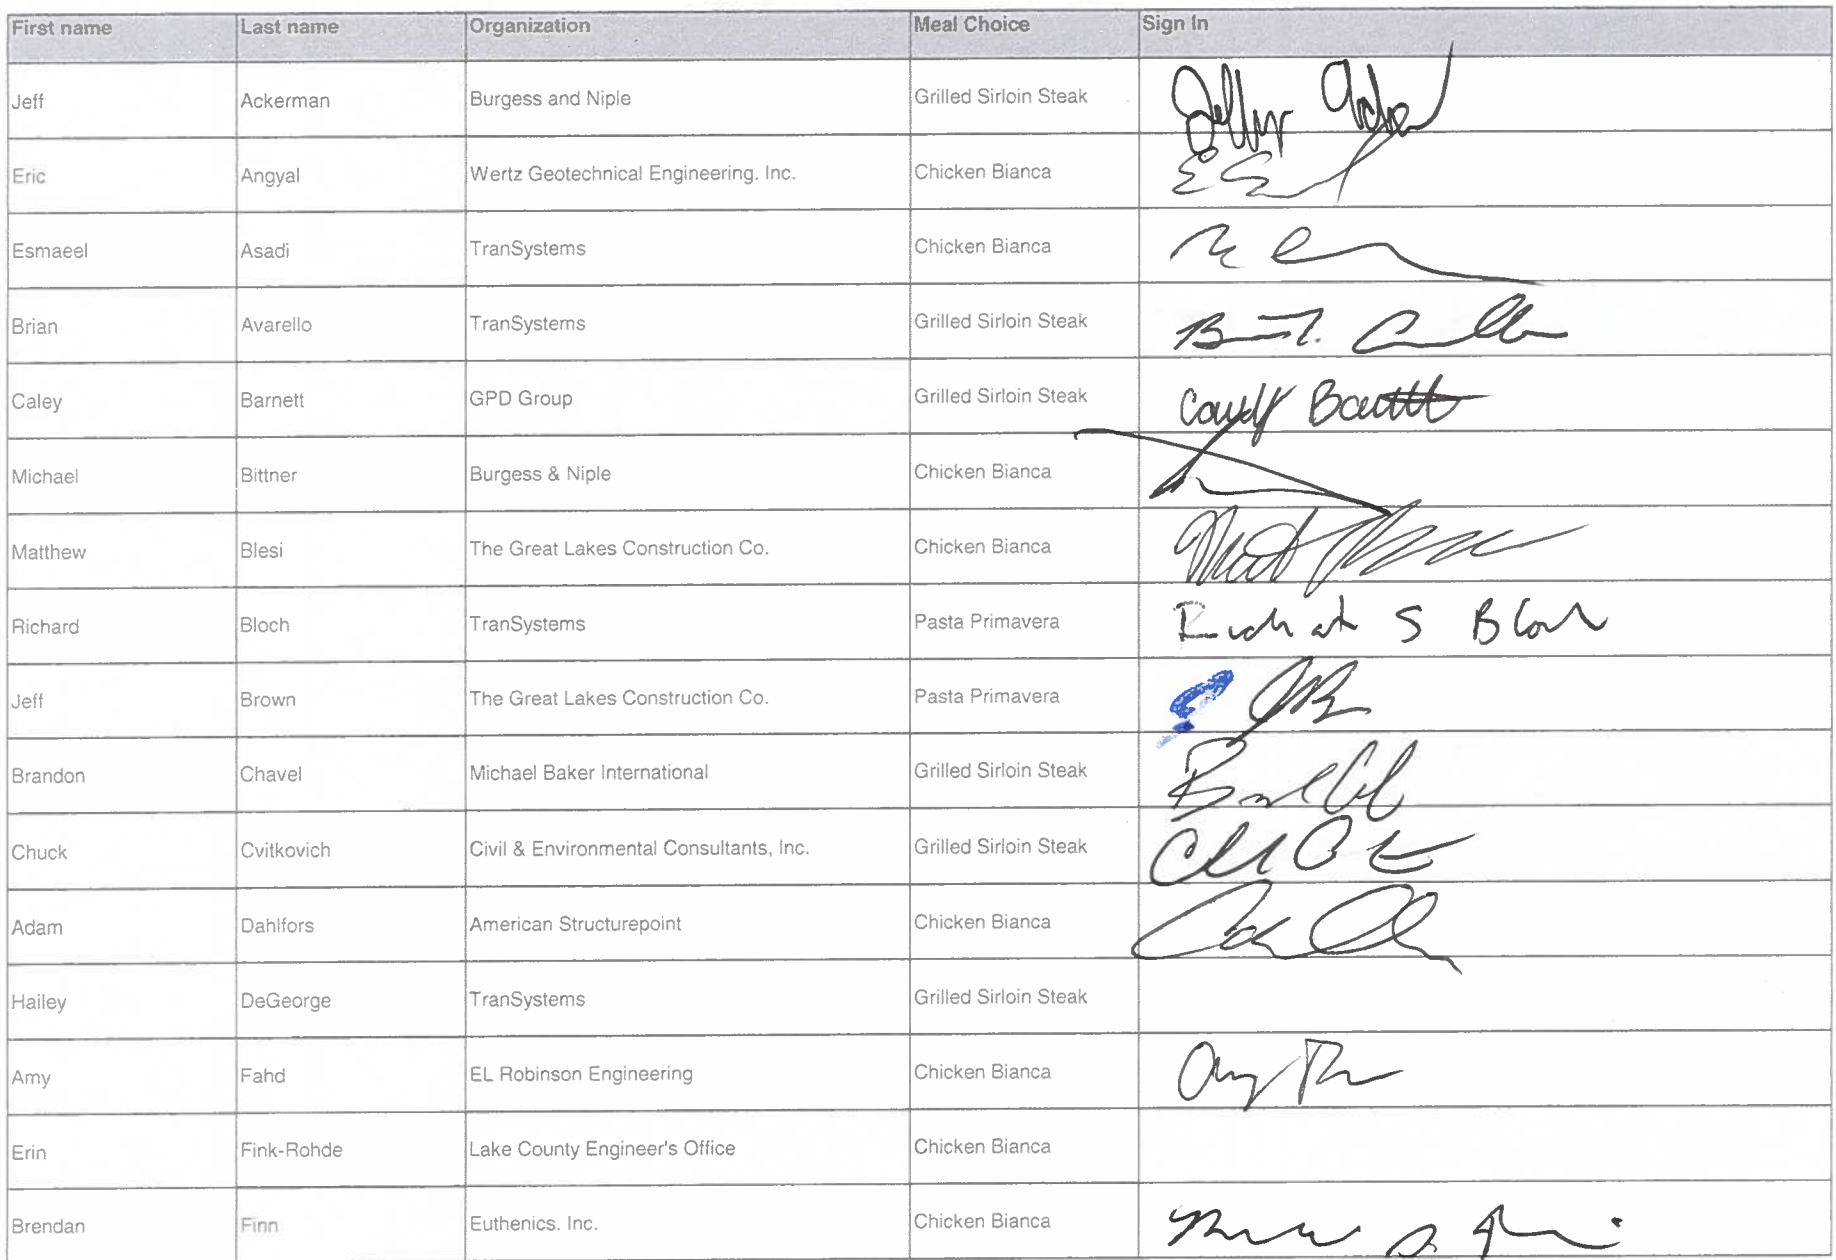 First name Last name Organization Meal Choice Sign In
Jeff Ackerman Burgess and Niple Grilled Sirloin Steak
Eric Angyal Wertz Geotechnical Engineering. Inc. Chicken Bianca
Esmaeel Asadi TranSystems Chicken Bianca
Brian Avarello TranSystems Grilled Sirloin Steak
Caley Barnett GPD Group Grilled Sirloin Steak
Michael Bittner Burgess & Niple Chicken Bianca
Matthew Blesi The Great Lakes Construction Co. Chicken Bianca
Richard Bloch TranSystems Pasta Primavera Richard S Bloch
Jeff Brown The Great Lakes Construction Co. Pasta Primavera
Brandon Chavel Michael Baker International Grilled Sirloin Steak
Chuck Cvitkovich Civil & Environmental Consultants, Inc. Grilled Sirloin Steak
Adam Dahlfors American Structurepoint Chicken Bianca
Hailey DeGeorge TranSystems Grilled Sirloin Steak
Amy Fahd EL Robinson Engineering Chicken Bianca
Erin Fink-Rohde Lake County Engineer's Office Chicken Bianca
Brendan Finn Euthenics. Inc. Chicken Bianca